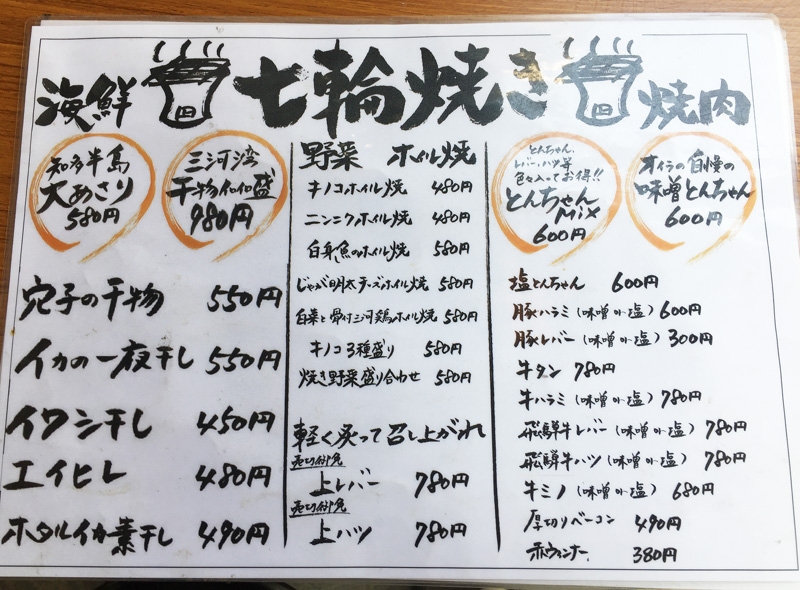 海鮮 七輪焼き 焼肉
知多半島
大あさり
580円
三河湾
干物
盛
980円
穴子の干物 550円
イカの一夜干し 550円
イワシ干し 450円
エイヒレ 480円
ホタルイカ素干し 490円
野菜 ホイル焼
キノコホイル焼 480円
ニンニクホイル焼 480円
白身魚のホイル焼 580円
じゃが明太チーズホイル焼 580円
白菜と骨付三河鶏ホイル焼 580円
キノコ3種盛り 580円
焼き野菜盛り合わせ 580円
軽く炙って召し上がれ
売切御免
上レバー 780円
売切御免
上ハツ 780円
とんちゃん、
レバー、ハツ等
色々入ってお得!!
とんちゃん
MIX
600円
オイラの自慢の
味噌とんちゃん
600円
塩とんちゃん 600円
豚ハラミ(味噌or塩) 600円
豚レバー(味噌or塩) 300円
牛タン 780円
牛ハラミ(味噌or塩) 780円
飛騨牛レバー(味噌or塩) 780円
飛騨牛ハツ(味噌or塩) 780円
牛ミノ(味噌or塩) 680円
厚切りベーコン 490円
赤ウィンナー 380円